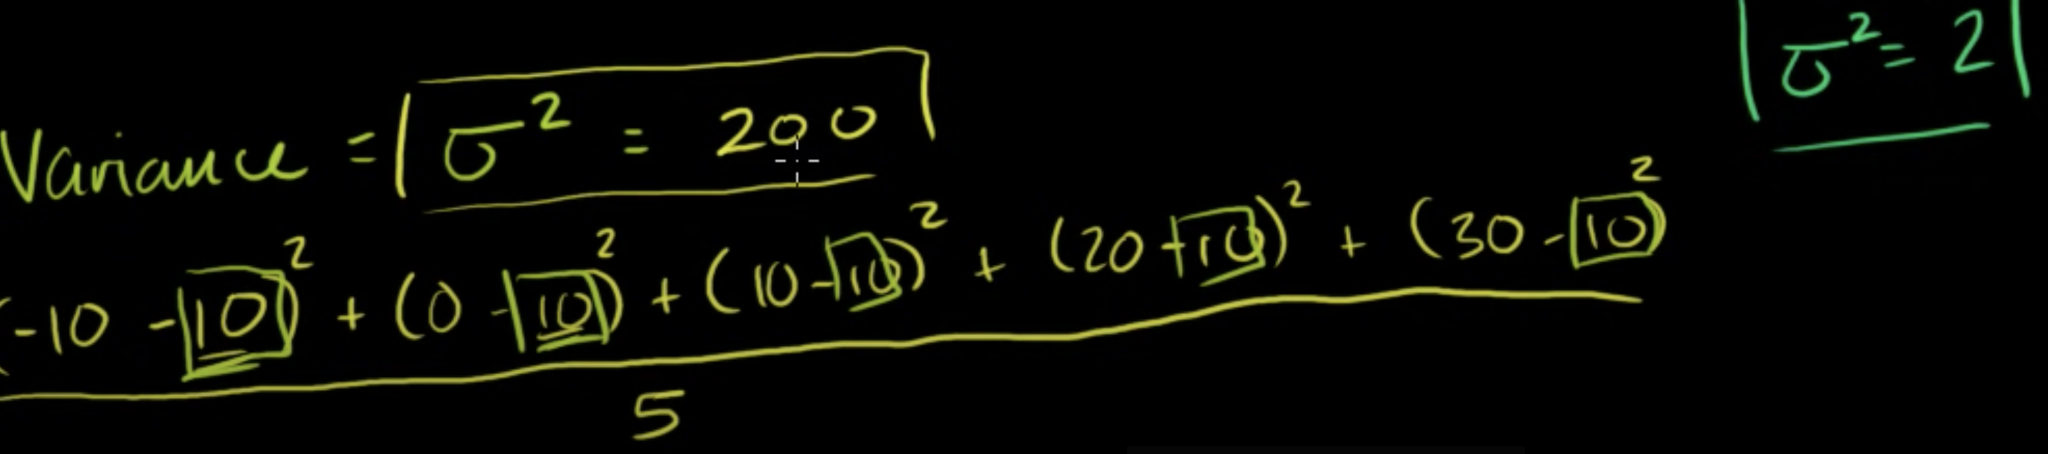 σ² = 2
Variance = σ² = 200
(-10 - 10)² + (0 - 10)² + (10 - 10)² + (20 - 10)² + (30 - 10)²
5